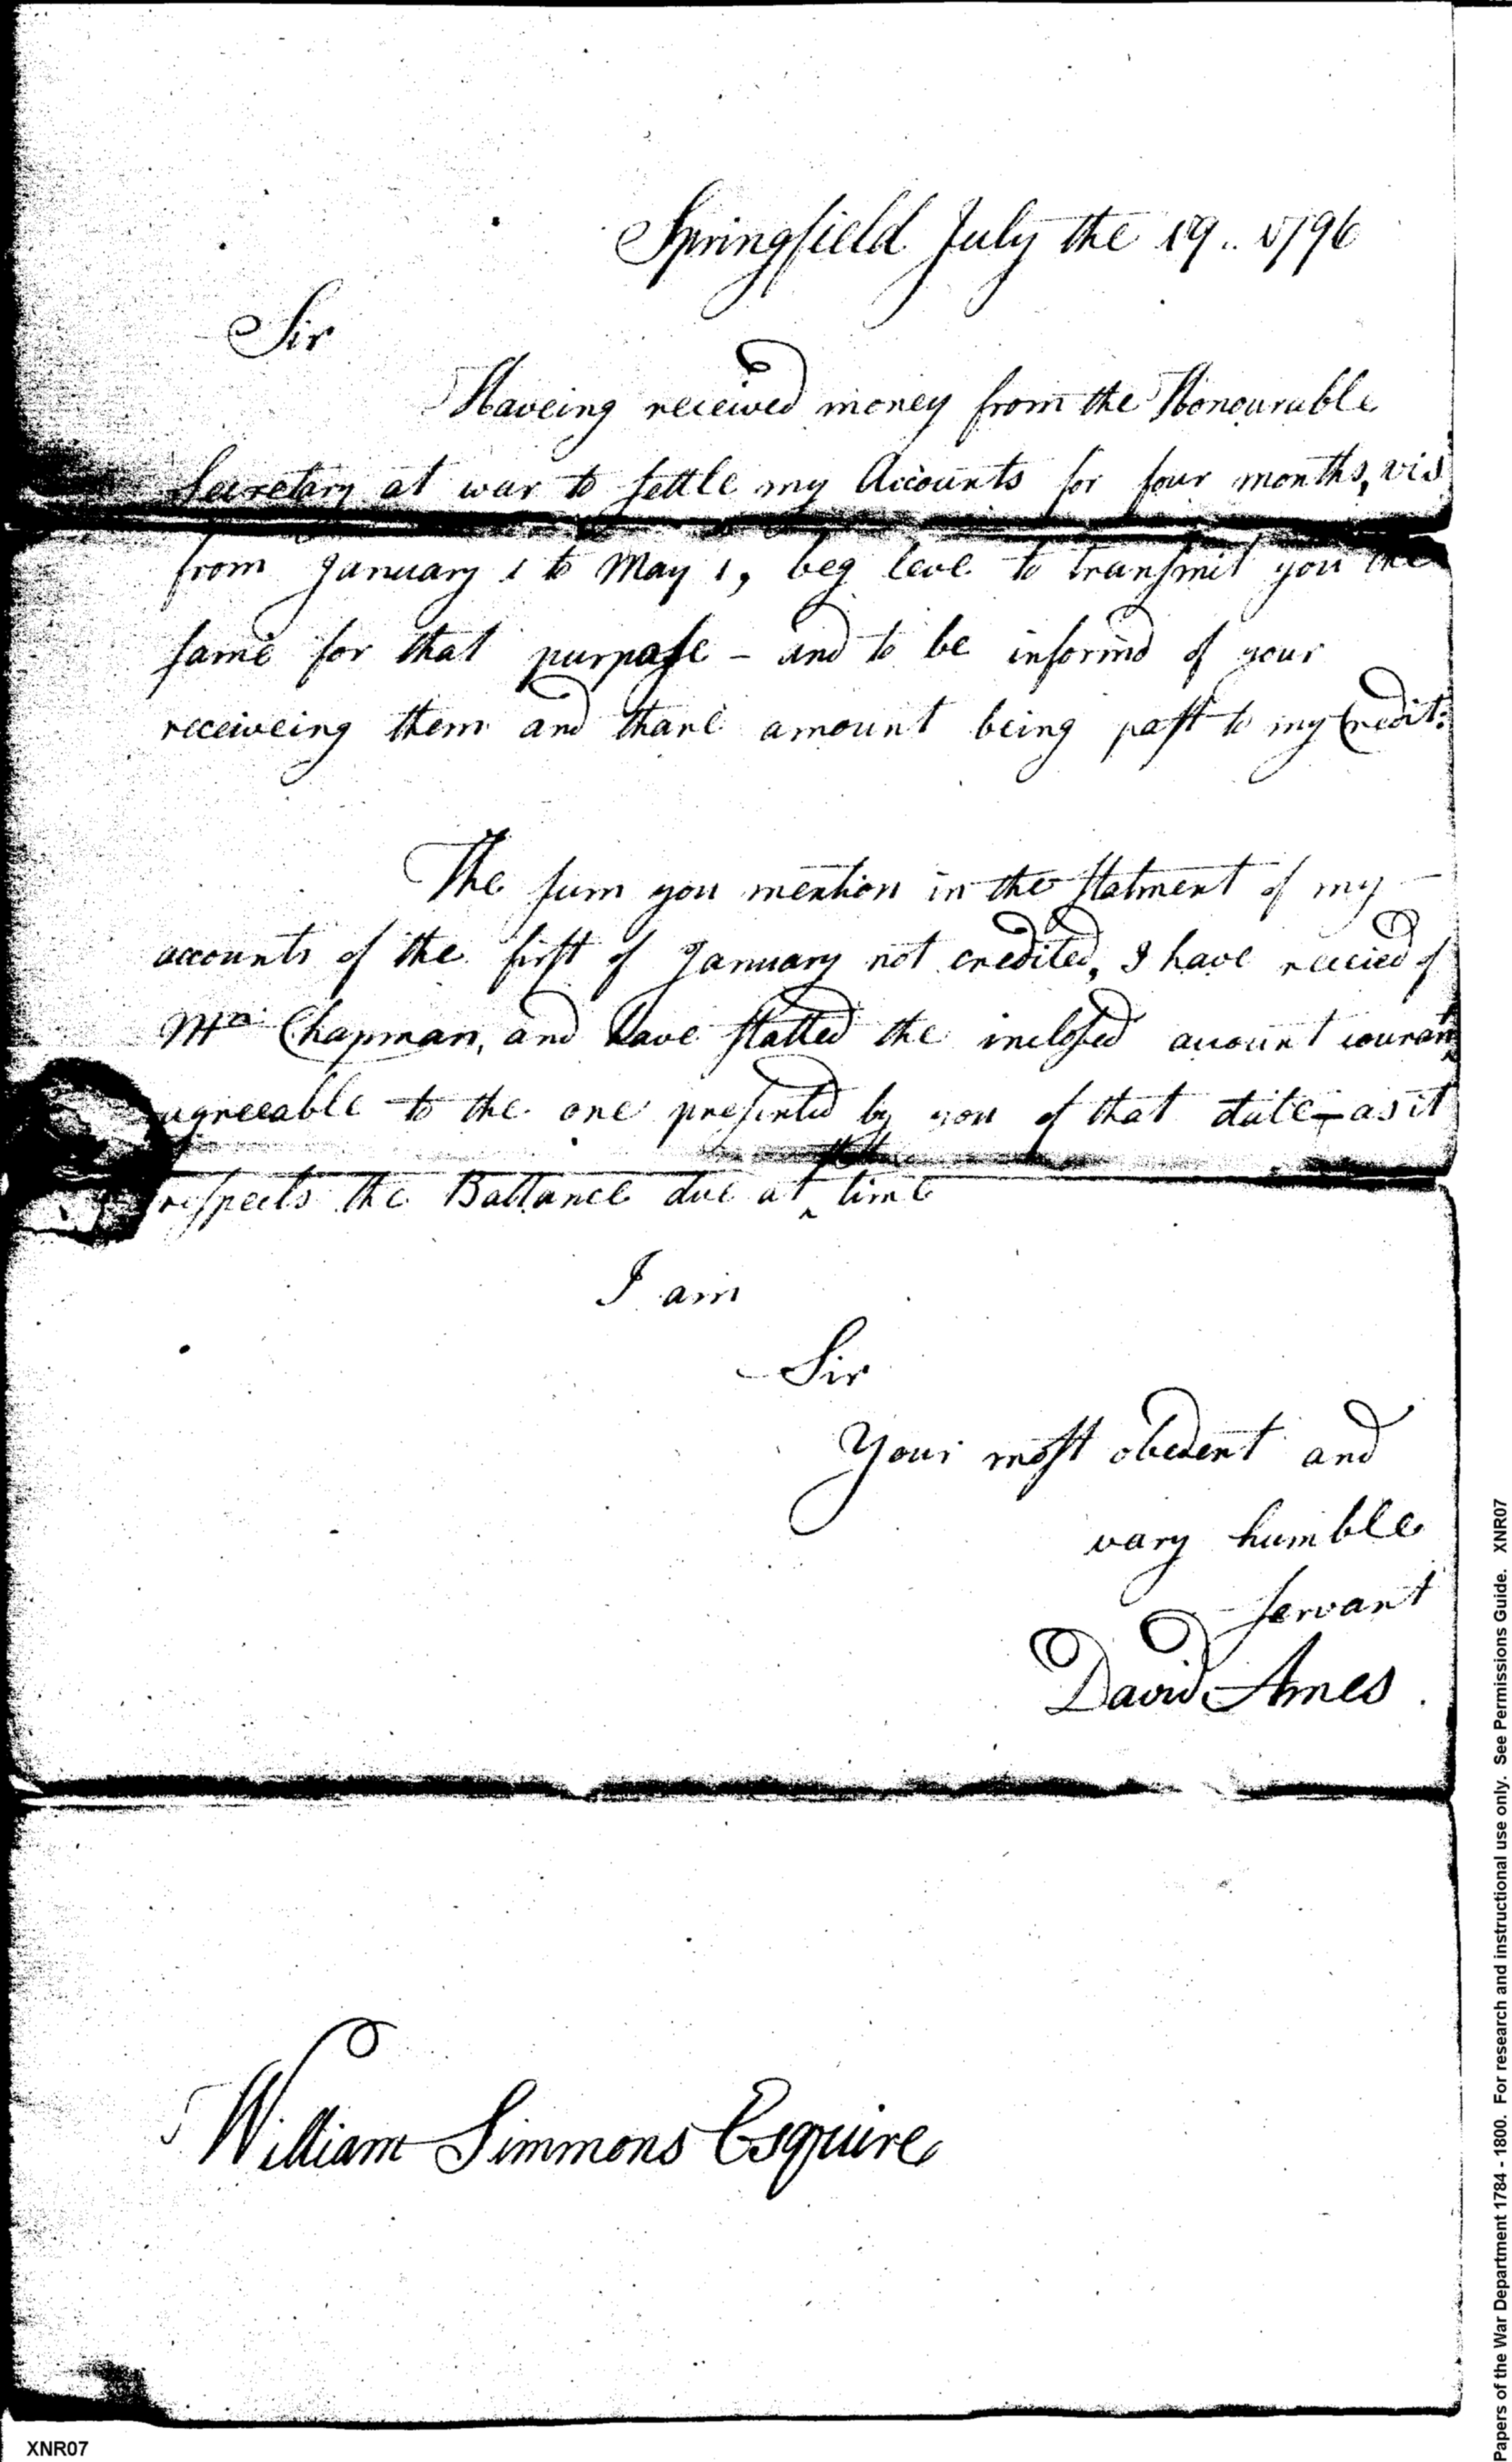 Springfield July the 19.. 1796
Sir
Haveing received money from the Honourable
Secretary at war to settle my Accounts for four months, vis
from January 1 to May 1, beg leve to transmit you the
same for that purpose - and to be informd of your
receiveing them and thare amount being past to my Credit:
The sum you mention in the statment of my
accounts of the first of January not credited, I have recieed of
Mr. Chapman, and have statted the inclosed account courant
agreeable to the one presented by you of that date - as it
respects the Ballance due at ^ that time
I am
Sir
Your most obedent and
vary humble
servant
David Ames
William Simmons Esquire
XNR07
Papers of the War Department 1784 - 1800. For research and instructional use only. See Permissions Guide. XNR07